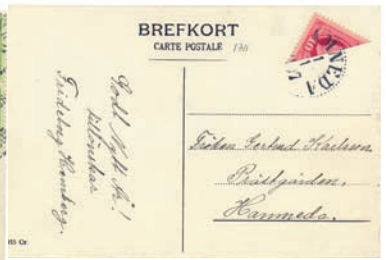 BREFKORT
CARTE POSTALE
Godt Nytt År!
tillönskar
Fridebog Homberg.
Fröken Gertrud Karlsson
Prästgården.
Hannneda.